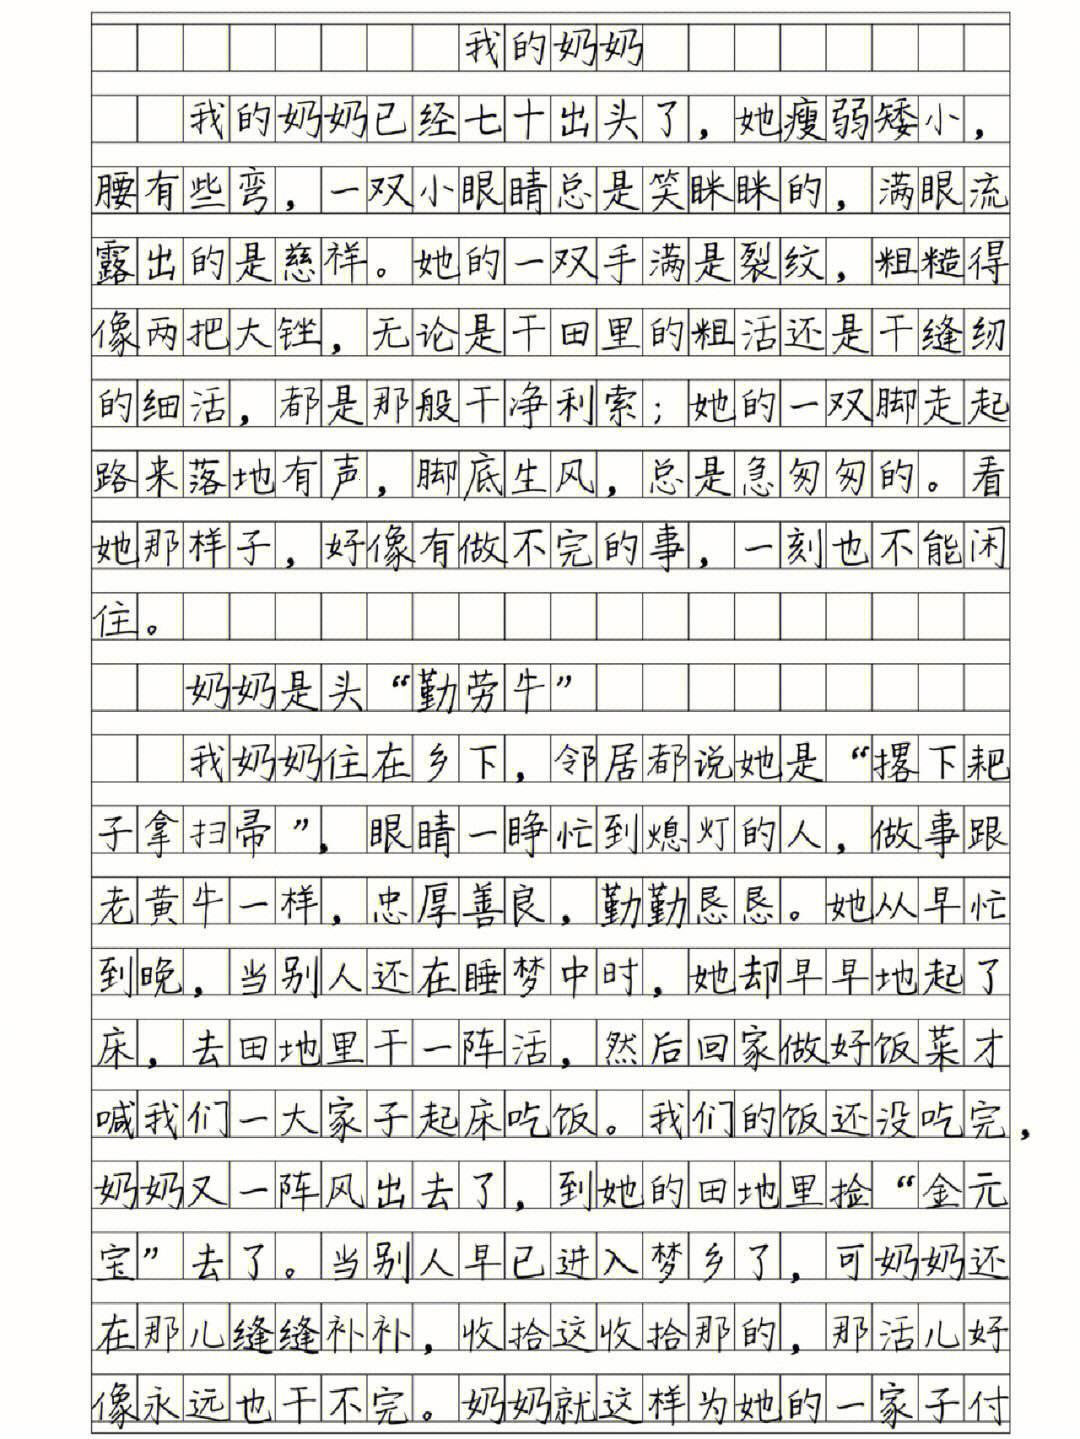 我的奶奶
我的奶奶已经七十出头了，她瘦弱矮小，
腰有些弯，一双小眼睛总是笑眯眯的，满眼流
露出的是慈祥。她的一双手满是裂纹，粗糙得
像两把大锉，无论是干田里的粗活还是干缝纫
的细活，都是那般干净利索；她的一双脚走起
路来落地有声，脚底生风，总是急匆匆的。看
她那样子，好像有做不完的事，一刻也不能闲
住。
奶奶是头“勤劳牛”
我奶奶住在乡下，邻居都说她是“撂下耙
子拿扫帚”，眼睛一睁忙到熄灯的人，做事跟
老黄牛一样，忠厚善良，勤勤恳恳。她从早忙
到晚，当别人还在睡梦中时，她却早早地起了
床，去田地里干一阵活，然后回家做好饭菜才
喊我们一大家子起床吃饭。我们的饭还没吃完，
奶奶又一阵风出去了，到她的田地里捡“金元
宝”去了。当别人早已进入梦乡了，可奶奶还
在那儿缝缝补补，收拾这收拾那的，那活儿好
像永远也干不完。奶奶就这样为她的一家子付